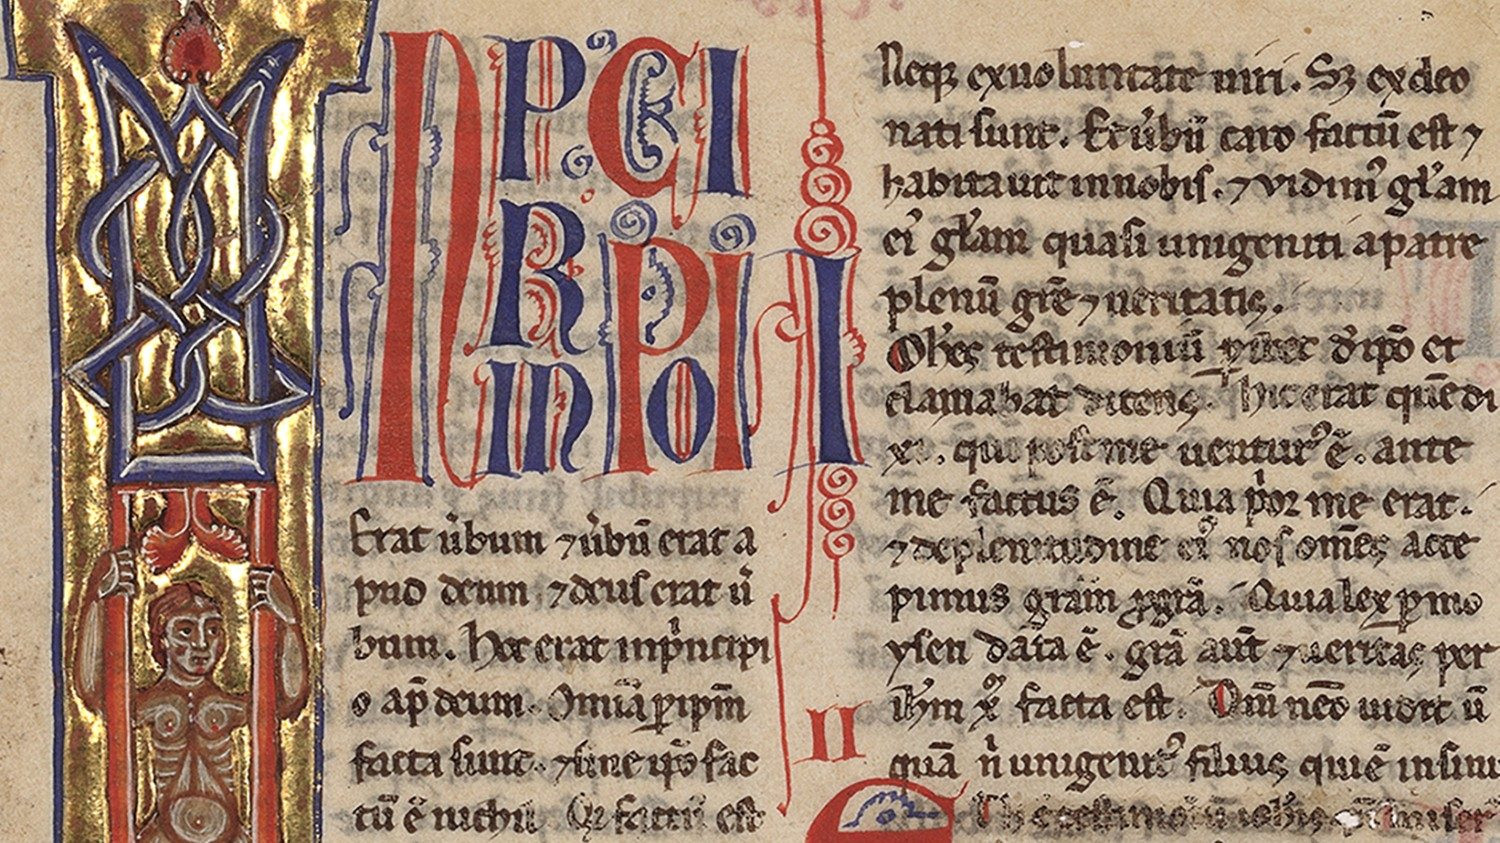 N P C I
R P I
IN O
Erat ůbum ⁊ ůbū erat a
pud deum ⁊ deus erat ů
bum. Hoc erat inpͥncipi
o ap̄ deum. Omīa ꝑ ip̄m
facta sunt. ⁊ sine ip̄o fac
tū ē nichil. Qͥ factū est
Neqꝫ ex uoluntate uiri. Sꝫ ex deo
nati sunt. Et ůbū caro factū est ⁊
habitauit in nobis. ⁊ vidimꝰ gl̄am
eiꝰ gl̄am quasi unigeniti a patre
plenū gr̄e ⁊ ueritatis.
Ioh̄es testimoniū ꝑhibet d̓ ip̄o et
clamabat dicens. Hic erat quē di
xi. qui post me uenturꝰ ē. ante
me factus ē. Quia pͥor me erat.
⁊ de plenitudine eiꝰ nos om̄es acce
pimus gr̄am ꝓ gr̄a. Quia lex ꝑ mo
ysen data ē. gr̄a aūt ⁊ ueritas per
ih̄m xͫ facta est. Dm̄ nēo uidit ū
quā n̍ unigenitꝰ filius qui ē in sinu
II